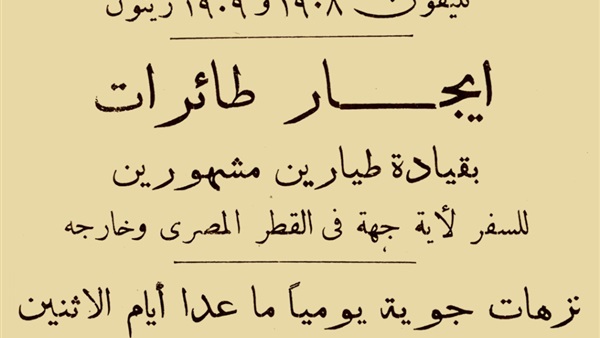 تليفون ١٩٠٨ و ١٩٠٩ زيتون
ايجار طائرات
بقيادة طيارين مشهورين
للسفر لأية جهة فى القطر المصرى وخارجه
نزهات جوية يومياً ما عدا أيام الاثنين